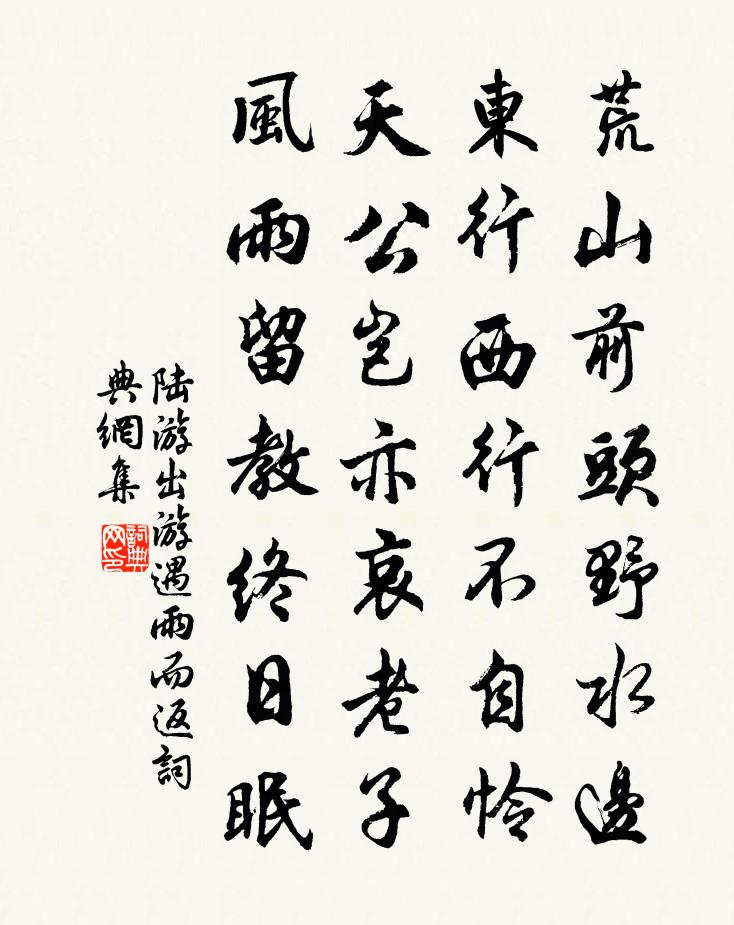 荒山前頭野水邊
東行西行不自怜
天公豈亦哀老子
風雨留教終日眠
陆游出游遇雨而返詞
典網集
詞典
网印